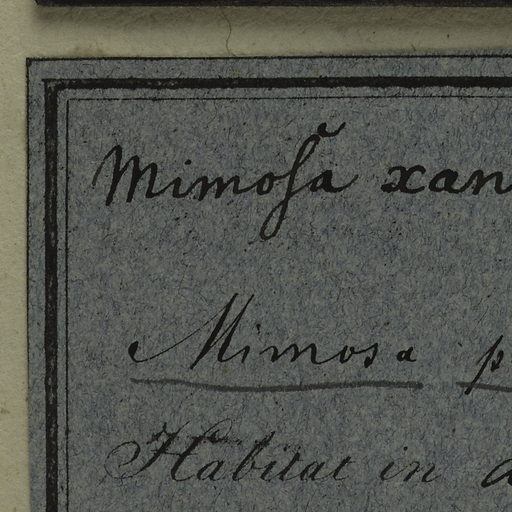 Mimosa xan
Mimosa p
Habitat in